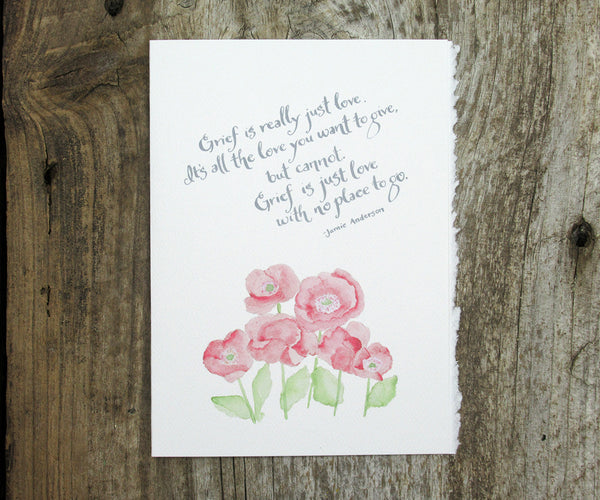 Grief is really just love.
It's all the love you want to give,
but cannot.
Grief is just love
with no place to go.
-Jamie Anderson